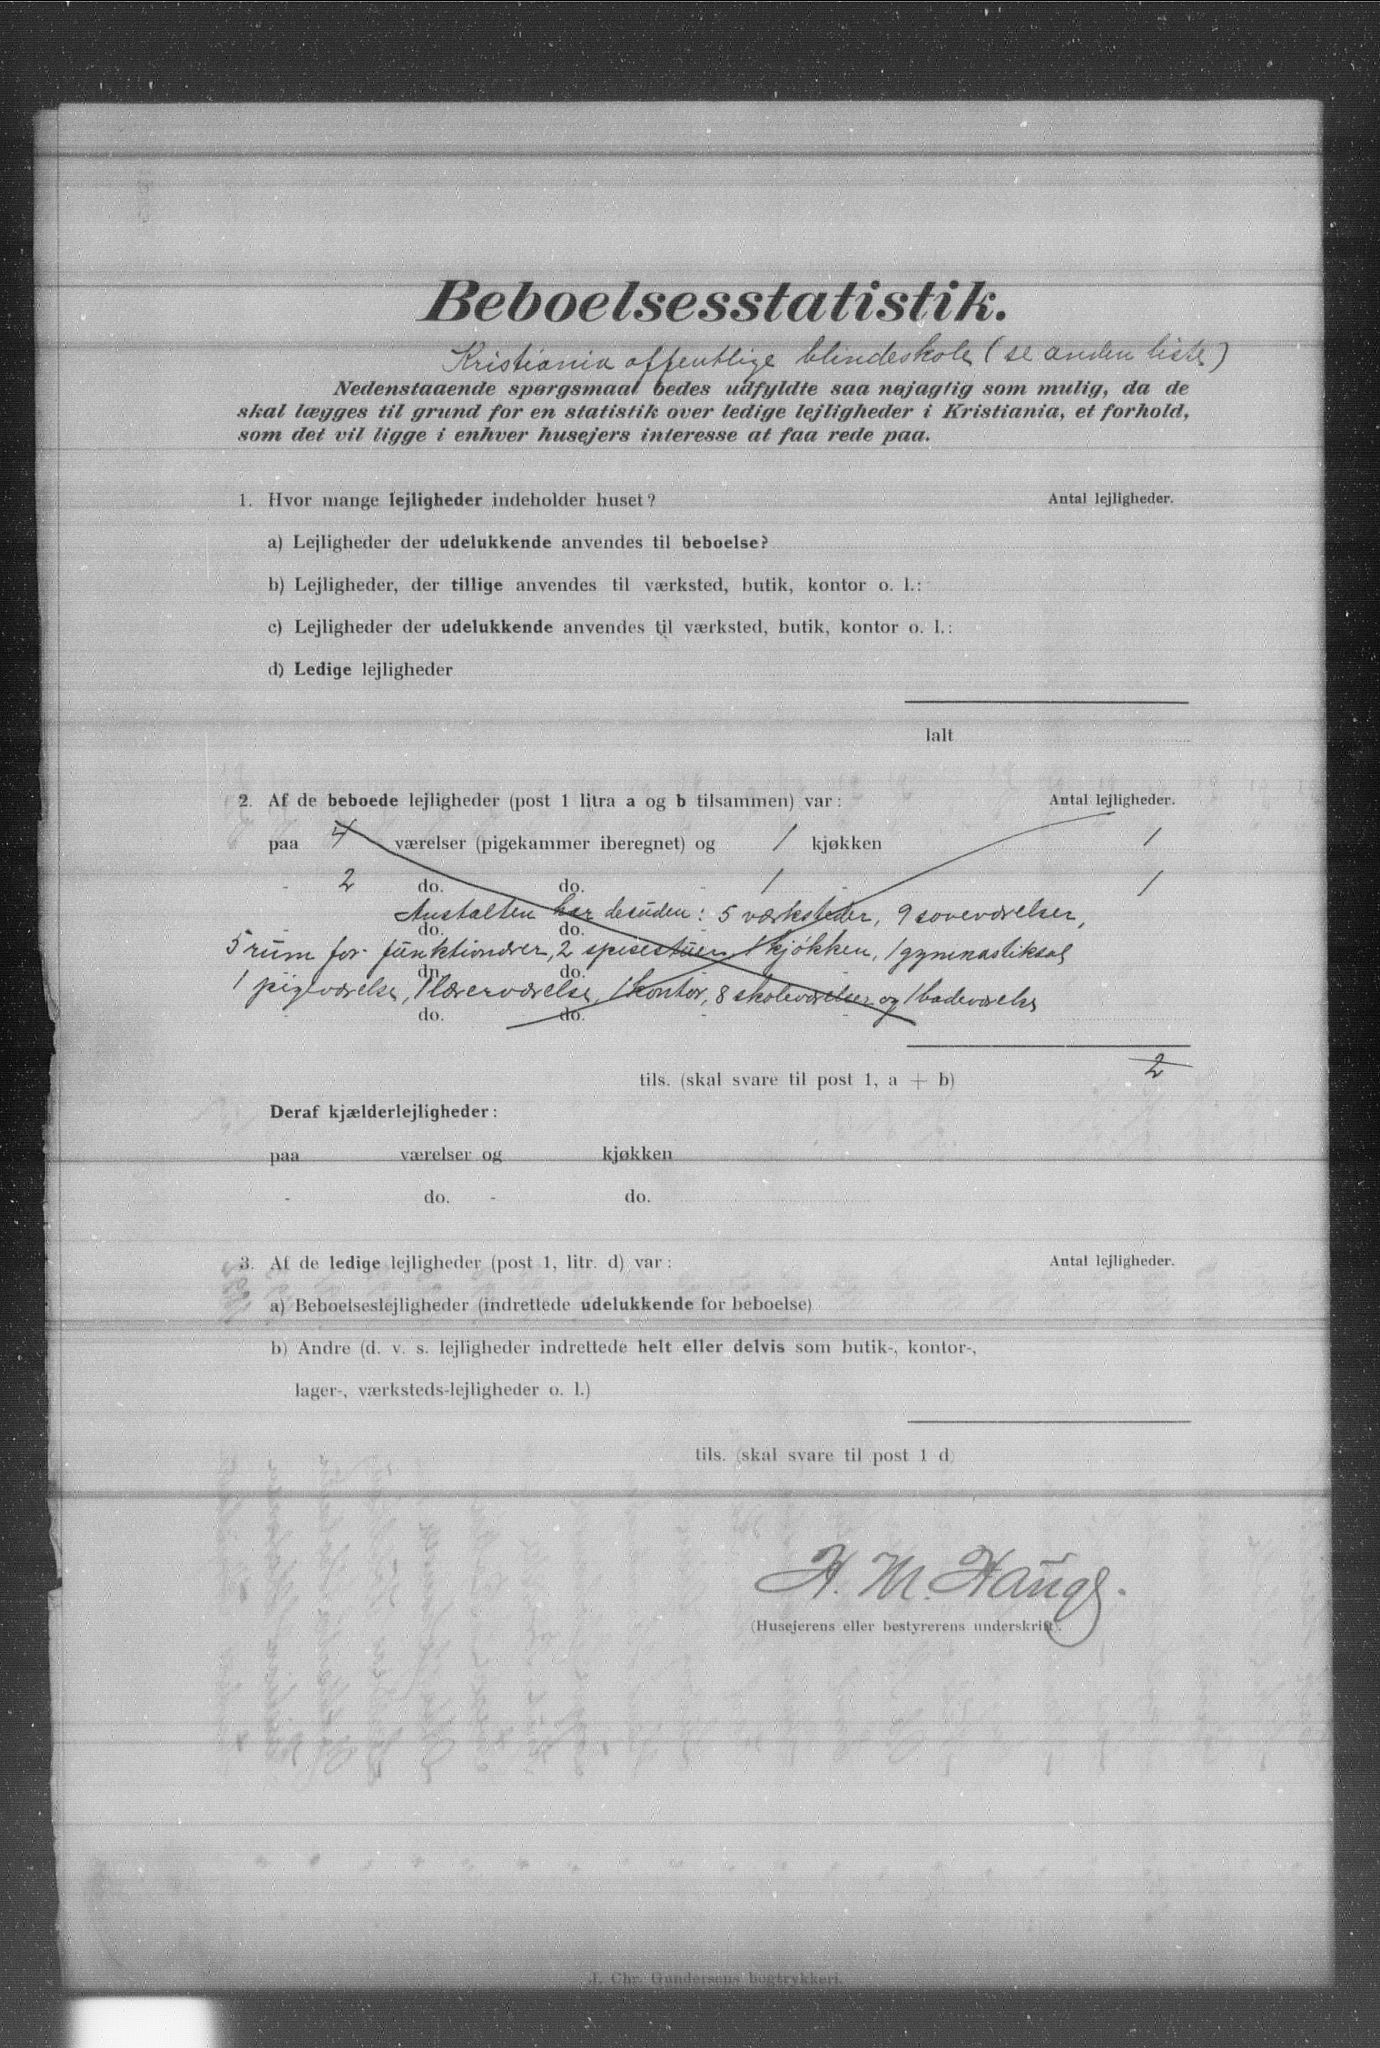 Beboelsesstatistik.
Kristiania offentlige blindeskole (se anden liste)
Nedenstaaende spørgsmaal bedes udfyldte saa nøjagtig som mulig, da de
skal lægges til grund for en statistik over ledige lejligheder i Kristiania, et forhold,
som det vil ligge i enhver husejers interesse at faa rede paa.
1. Hvor mange lejligheder indeholder huset? Antal lejligheder.
a) Lejligheder der udelukkende anvendes til beboelse?
b) Lejligheder, der tillige anvendes til værksted, butik, kontor o. l.:
c) Lejligheder der udelukkende anvendes til værksted, butik, kontor o. l.:
d) Ledige lejligheder
Ialt
2. Af de beboede lejligheder (post 1 litra a og b tilsammen) var: Antal lejligheder.
paa 4 værelser (pigekammer iberegnet) og 1 kjøkken 1
- 2 do. do. - 1 - 1
Anstalten har desuden: 5 værksteder, 9 soveværelser,
do. do.
5 rum for funktionærer, 2 spisestuer, 1 kjøkken, 1 gymnastiksal
do. do. -
1 pigeværelse, 1 lærerværelse, 1 kontor, 8 skoleværelser og 1 badeværelse
- do. do. - -
2
tils. (skal svare til post 1, a + b)
Deraf kjælderlejligheder:
paa værelser og kjøkken
- do. - do.
3. Af de ledige lejligheder (post 1, litr. d) var: Antal lejligheder.
a) Beboelseslejligheder (indrettede udelukkende for beboelse)
b) Andre (d. v. s. lejligheder indrettede helt eller delvis som butik-, kontor-,
lager-, værksteds-lejligheder o. l.)
tils. (skal svare til post 1 d)
H. M. Hauge.
(Husejerens eller bestyrerens underskrift).
J. Chr. Gundersens bogtrykkeri.